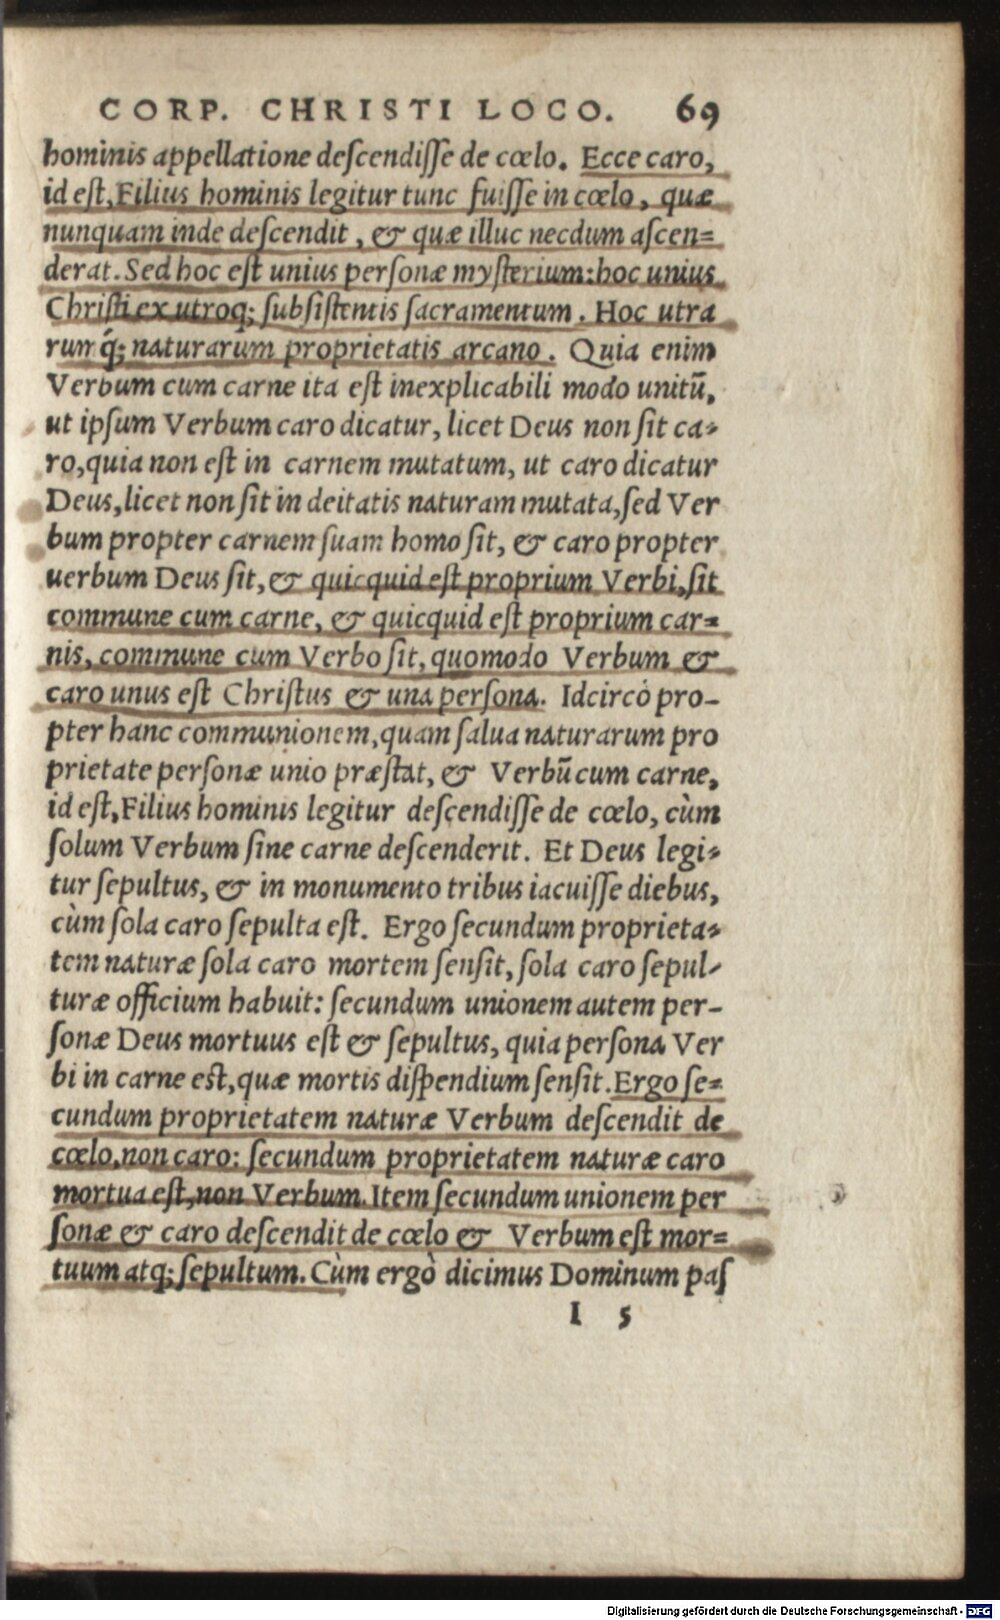 CORP. CHRISTI LOCO. 69
hominis appellatione deſcendiſſe de cœlo. Ecce caro,
id eſt, Filius hominis legitur tunc fuiſſe in cœlo, quæ
nunquam inde deſcendit, & quæ illuc necdum aſcen=
derat. Sed hoc eſt unius perſonæ myſterium: hoc unius
Chriſti ex utroq; ſubſiſtentis ſacramentum. Hoc utra
rum q́; naturarum proprietatis arcano. Quia enim
Verbum cum carne ita eſt inexplicabili modo unitū,
ut ipſum Verbum caro dicatur, licet Deus non ſit ca-
ro, quia non eſt in carnem mutatum, ut caro dicatur
Deus, licet non ſit in deitatis naturam mutata, ſed Ver
bum propter carnem ſuam homo ſit, & caro propter
uerbum Deus ſit, & quicquid eſt proprium Verbi, ſit
commune cum carne, & quicquid eſt proprium car=
nis, commune cum Verbo ſit, quomodo Verbum &
caro unus eſt Chriſtus & una perſona. Idcircò pro-
pter hanc communionem, quam ſalua naturarum pro
prietate perſonæ unio præſtat, & Verbū cum carne,
id eſt, Filius hominis legitur deſcendiſſe de cœlo, cùm
ſolum Verbum ſine carne deſcenderit. Et Deus legi-
tur ſepultus, & in monumento tribus iacuiſſe diebus,
cùm ſola caro ſepulta eſt. Ergo ſecundum proprieta-
tem naturæ ſola caro mortem ſenſit, ſola caro ſepul-
turæ officium habuit: ſecundum unionem autem per-
ſonæ Deus mortuus eſt & ſepultus, quia perſona Ver
bi in carne est, quæ mortis diſpendium ſenſit. Ergo ſe=
cundum proprietatem naturæ Verbum deſcendit de
cœlo, non caro: ſecundum proprietatem naturæ caro
mortua eſt, non Verbum. Item ſecundum unionem per
ſonæ & caro deſcendit de cœlo & Verbum eſt mor=
tuum atq; ſepultum. Cùm ergò dicimus Dominum paſ
I 5
Digitalisierung gefördert durch die Deutsche Forschungsgemeinschaft - DFG